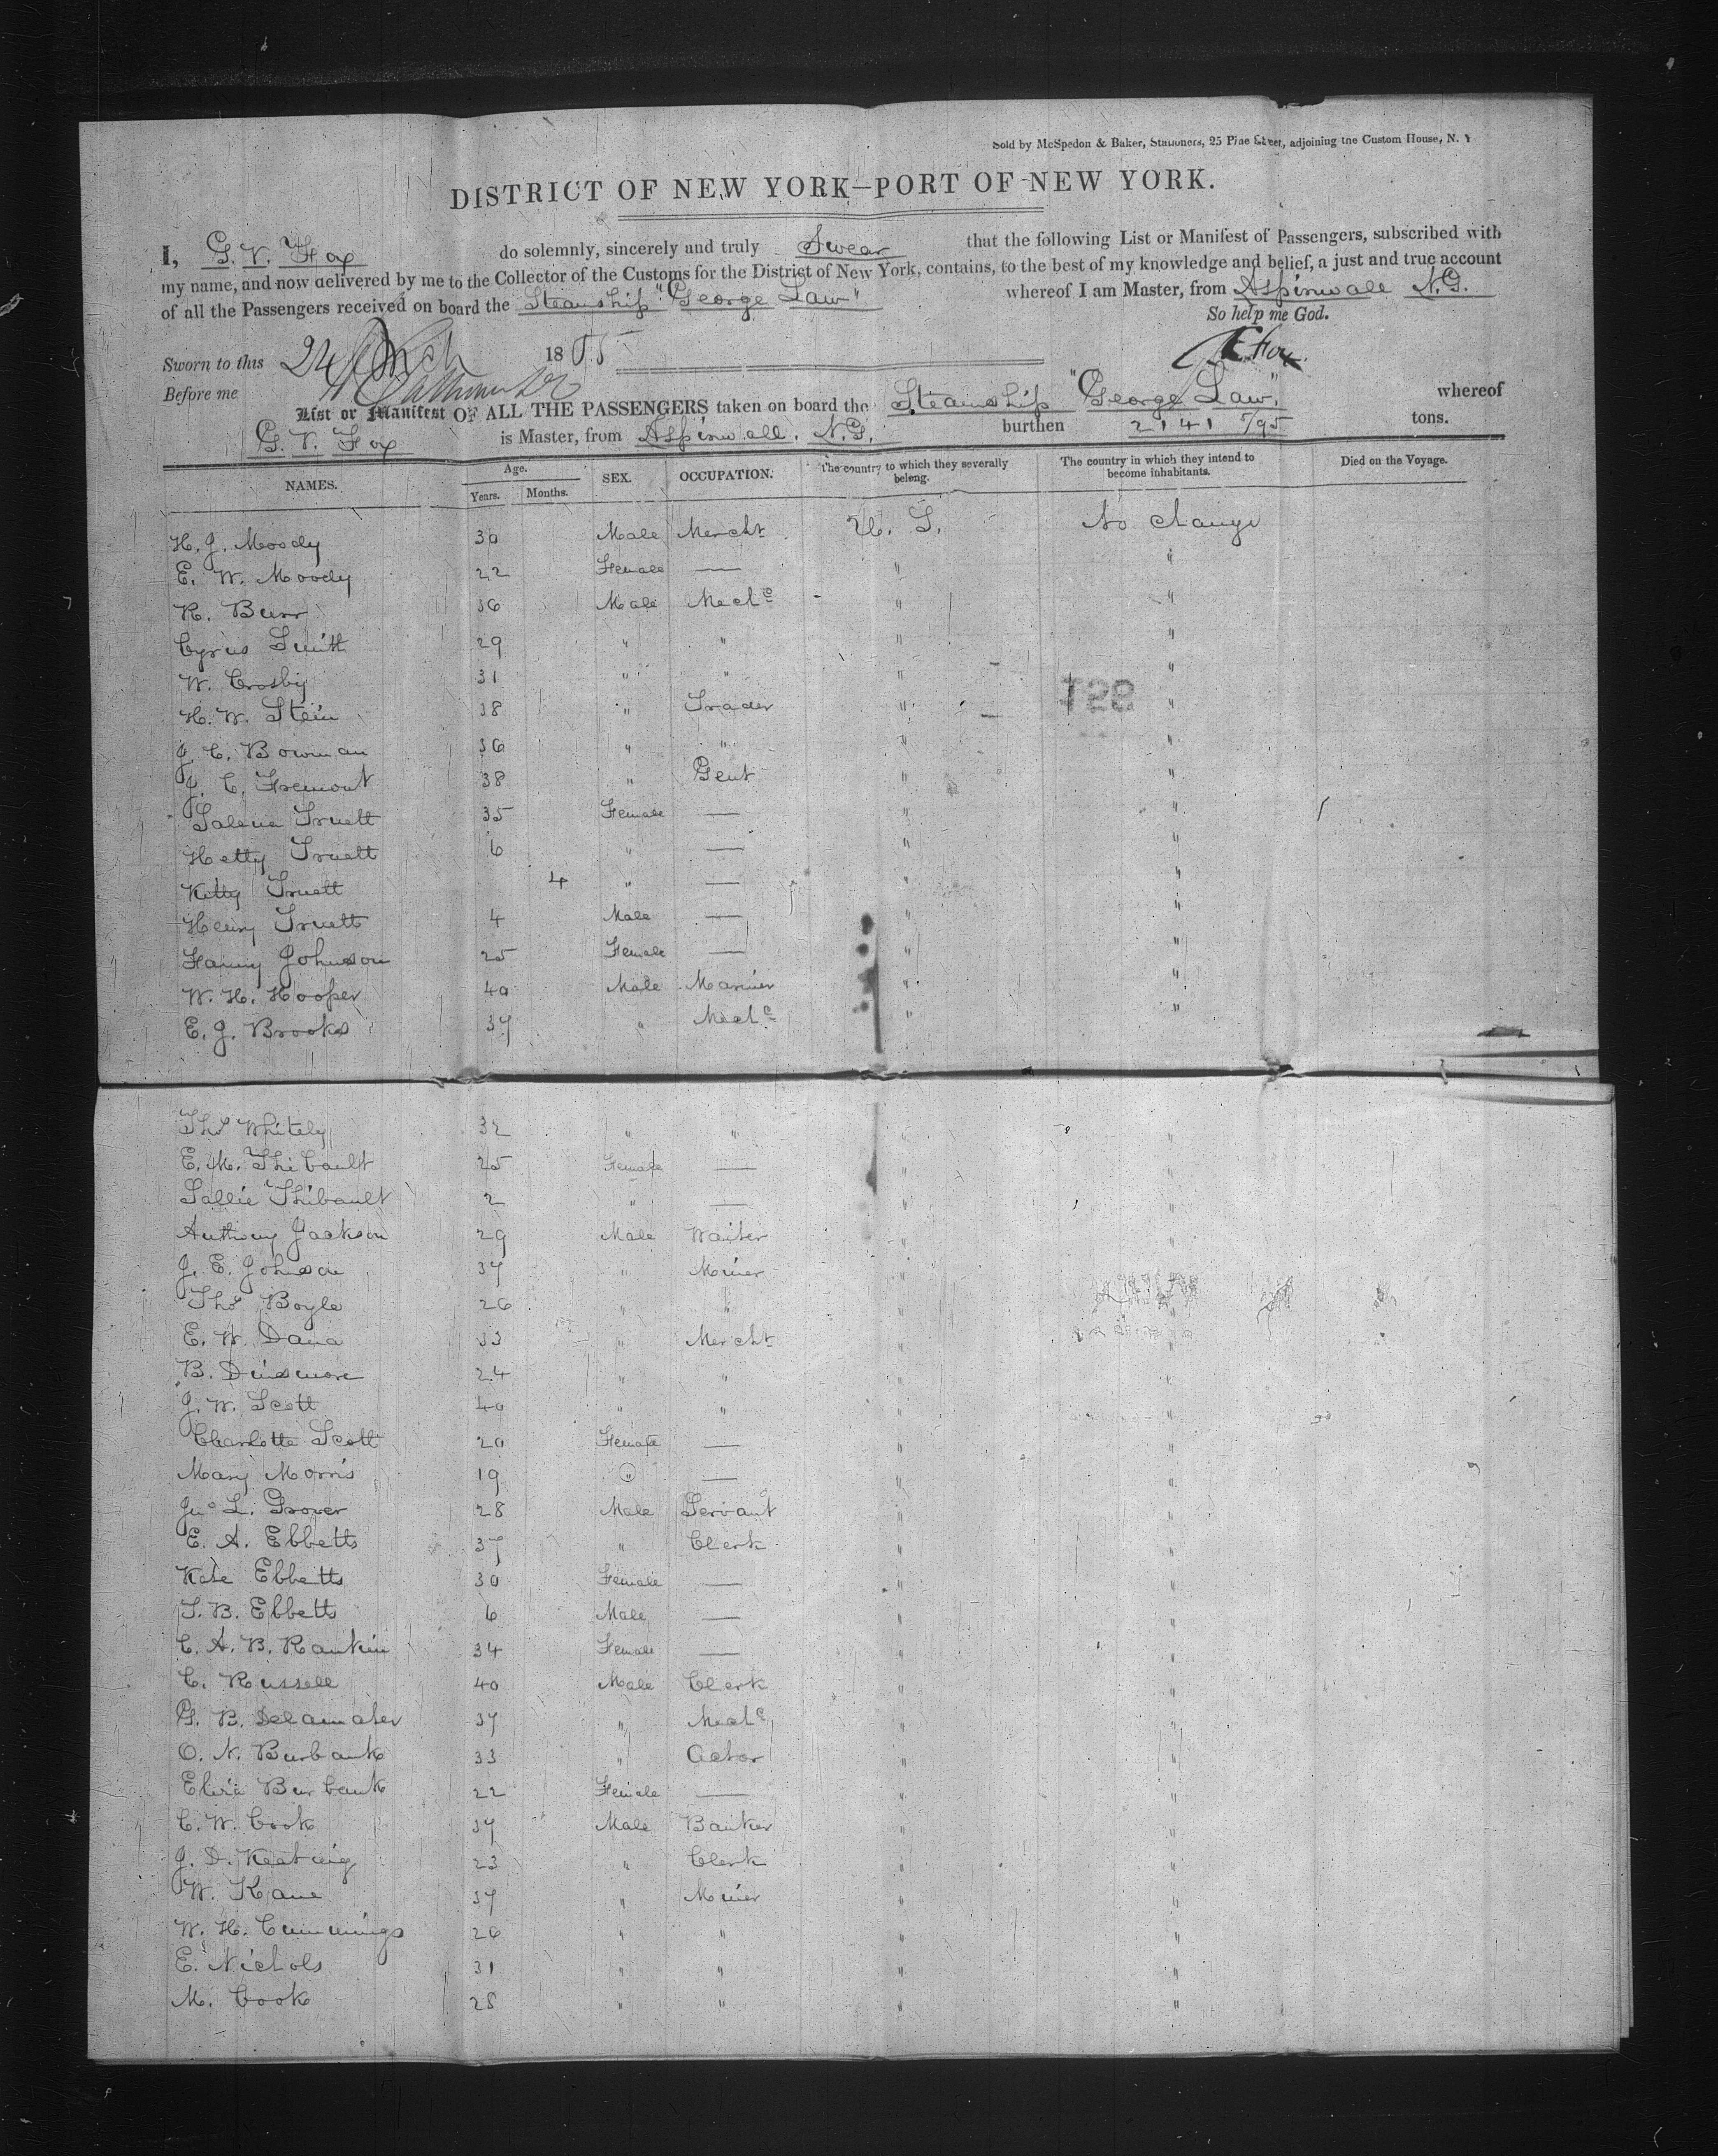 Sold by McSpedon & Baker, Stationers, 25 Pine Street, adjoining the Custom House, N. Y
DISTRICT OF NEW YORK—PORT OF NEW YORK.
I, G. V. Fox do solemnly, sincerely and truly Swear that the following List or Manifest of Passengers, subscribed with
my name, and now delivered by me to the Collector of the Customs for the District of New York, contains, to the best of my knowledge and belief, a just and true account
of all the Passengers received on board the Steamship "George Law" whereof I am Master, from Aspinwall N.G.
So help me God.
Sworn to this 24 Mch 1855 G V Fox
Before me
List or Manifest OF ALL THE PASSENGERS taken on board the Steamship "George Law" whereof
G. V. Fox is Master, from Aspinwall. N.G. burthen 2141 5/95 tons.
NAMES. Age. Years. Months. SEX. OCCUPATION. The country to which they severally belong. The country in which they intend to become inhabitants. Died on the Voyage.
H. J. Moody 30 Male Mercht U. S. No change
E. W. Moody 22 Female — " "
R. Burr 36 Male Mechc " "
Cyrus Smith 29 " " " "
W. Crosby 31 " " " "
H. W. Stein 38 " Trader " "
J. C. Bowman 36 " " " "
J. C. Fremont 38 " Gent " "
Salena Truett 35 Female — " "
Hetty Truett 6 " — " "
Kitty Truett 4 " — " "
Henry Truett 4 Male — " "
Fanny Johnson 25 Female — " "
W. H. Hooper 40 Male Mariner " "
E. J. Brooks 37 " Mechc " "
Thos Whitely 32 " " " "
E. M. Thibault 25 Female — " "
Sallie Thibault 2 " — " "
Anthony Jackson 29 Male Waiter " "
J. E. Johnson 37 " Miner " "
Thos Boyle 26 " " " "
E. W. Dana 33 " Mercht " "
B. Dinsmore 24 " " " "
J. W. Scott 40 " " " "
Charlotte Scott 20 Female — " "
Mary Morris 19 " — " "
Jno L. Grover 28 Male Servant " "
E. A. Ebbetts 37 " Clerk " "
Kate Ebbetts 30 Female — " "
S. B. Ebbetts 6 Male — " "
C. A. B. Rankin 34 Female — " "
C. Russell 40 Male Clerk " "
G. B. Delamater 37 " Mechc " "
O. N. Burbank 33 " Actor " "
Eliza Burbank 22 Female — " "
C. W. Cook 37 Male Banker " "
J. D. Keating 23 " Clerk " "
W. Kane 37 " Miner " "
W. H. Cummings 26 " " " "
E. Nichols 31 " " " "
M. Cook 28 " " " "